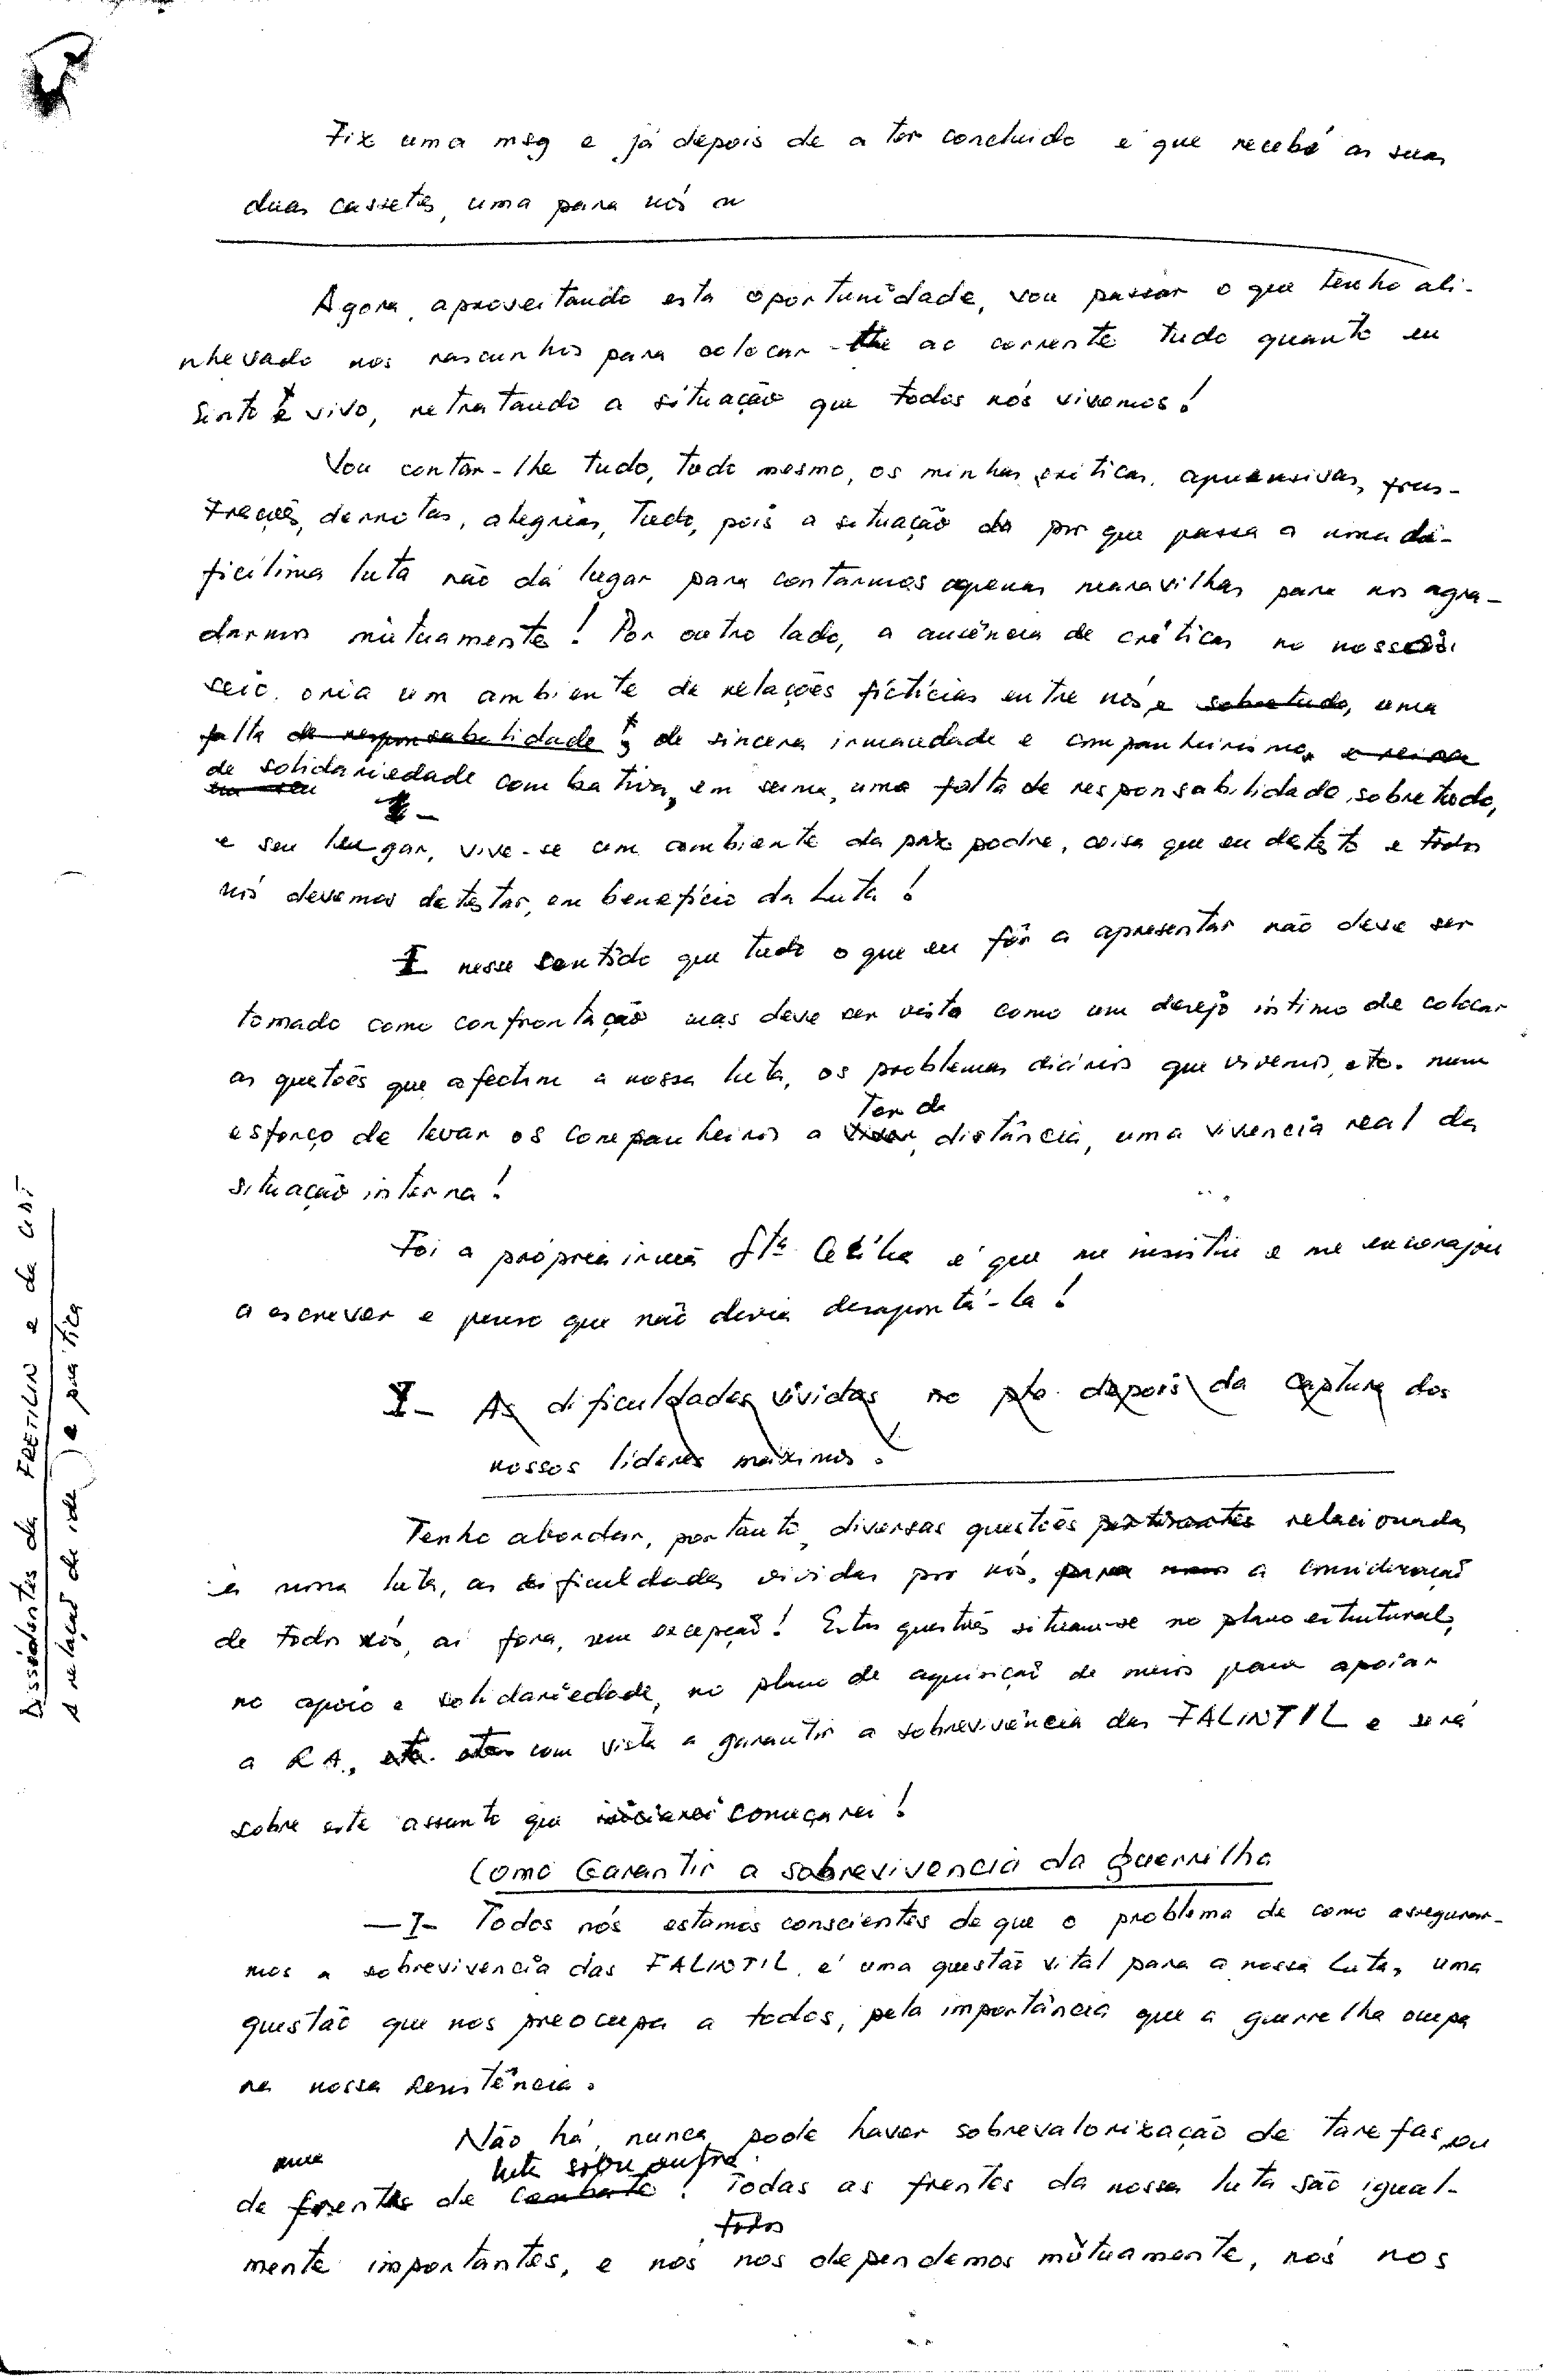 Fiz uma msg e já depois de a ter concluido é que recebi as suas
duas cassetes, uma para nós
Agora, aproveitando esta oportunidade, vou passar o que tenho ali-
nhevado nos rascunhos para colocar-lhe ao corrente tudo quanto eu
sinto e vivo, retratando a situação que todos nós vivemos!
Vou contar-lhe tudo, tudo mesmo, as minhas críticas, apreensivas, frus-
trações, derrotas, alegrias, tudo, pois a situação por que passa a nossa di-
ficílima luta não dá lugar para contarmos apenas maravilhas para nos agra-
darmos mùtuamente! Por outro lado, a ausência de críticas no nosso
seio, cria um ambiente de relações fictícias entre nós e sobretudo, uma
falta de responsabilidade de sincera irmandade e companheirismo, e reina
de solidariedade combativa, em suma, uma falta de responsabilidade, sobretudo,
em seu
e seu lugar, vive-se um ambiente da paz podre, coisa que eu detesto e todos
nós devemos detestar, em benefício da Luta!
É nesse sentido que tudo o que eu fôr a apresentar não deve ser
tomado como confrontação mas deve ser visto como um desejo íntimo de colocar
as questões que afectam a nossa luta, os problemas diários que vivemos, etc. num
ter de
esforço de levar os companheiros a viver, distância, uma vivencia real da
situação interna!
Foi a própria irmã Stª Cecília é que me insistiu e me encorajou
a escrever e penso que não devia desapontá-la!
I- As dificuldades vividas no pto. depois da captura dos
nossos líderes máximos.
Tenho abordar, portanto, diversas questões pertinentes relacionadas
às nossa luta, as dificuldades vividas por nós, para a consideração
de todos nós, aí fora, sem excepção! Estas questões situam-se no plano estrutural,
no apoio e solidariedade, no plano de aquisição de meios para apoiar
a RA., com vista a garantir a sobrevivência das FALINTIL e será
sobre este assunto que iniciarei começarei!
Como Garantir a sobrevivencia da guerrilha
-I- Todos nós estamos conscientes de que o problema de como assegurar-
mos a sobrevivencia das FALINTIL, é uma questão vital para a nossa Luta, uma
questão que nos preocupa a todos, pela importância que a guerrilha ocupa
na nossa Resistência.
Não há, nunca pode haver sobrevalorização de tarefas, ou
uma luta sobre outra.
de frente de combate! Todas as frentes da nossa luta são igual-
todos
mente importantes, e nós nos dependemos mùtuamente, nós nos
Dissidentes da FRETILIN e da UDT
A relação de ide) e prática